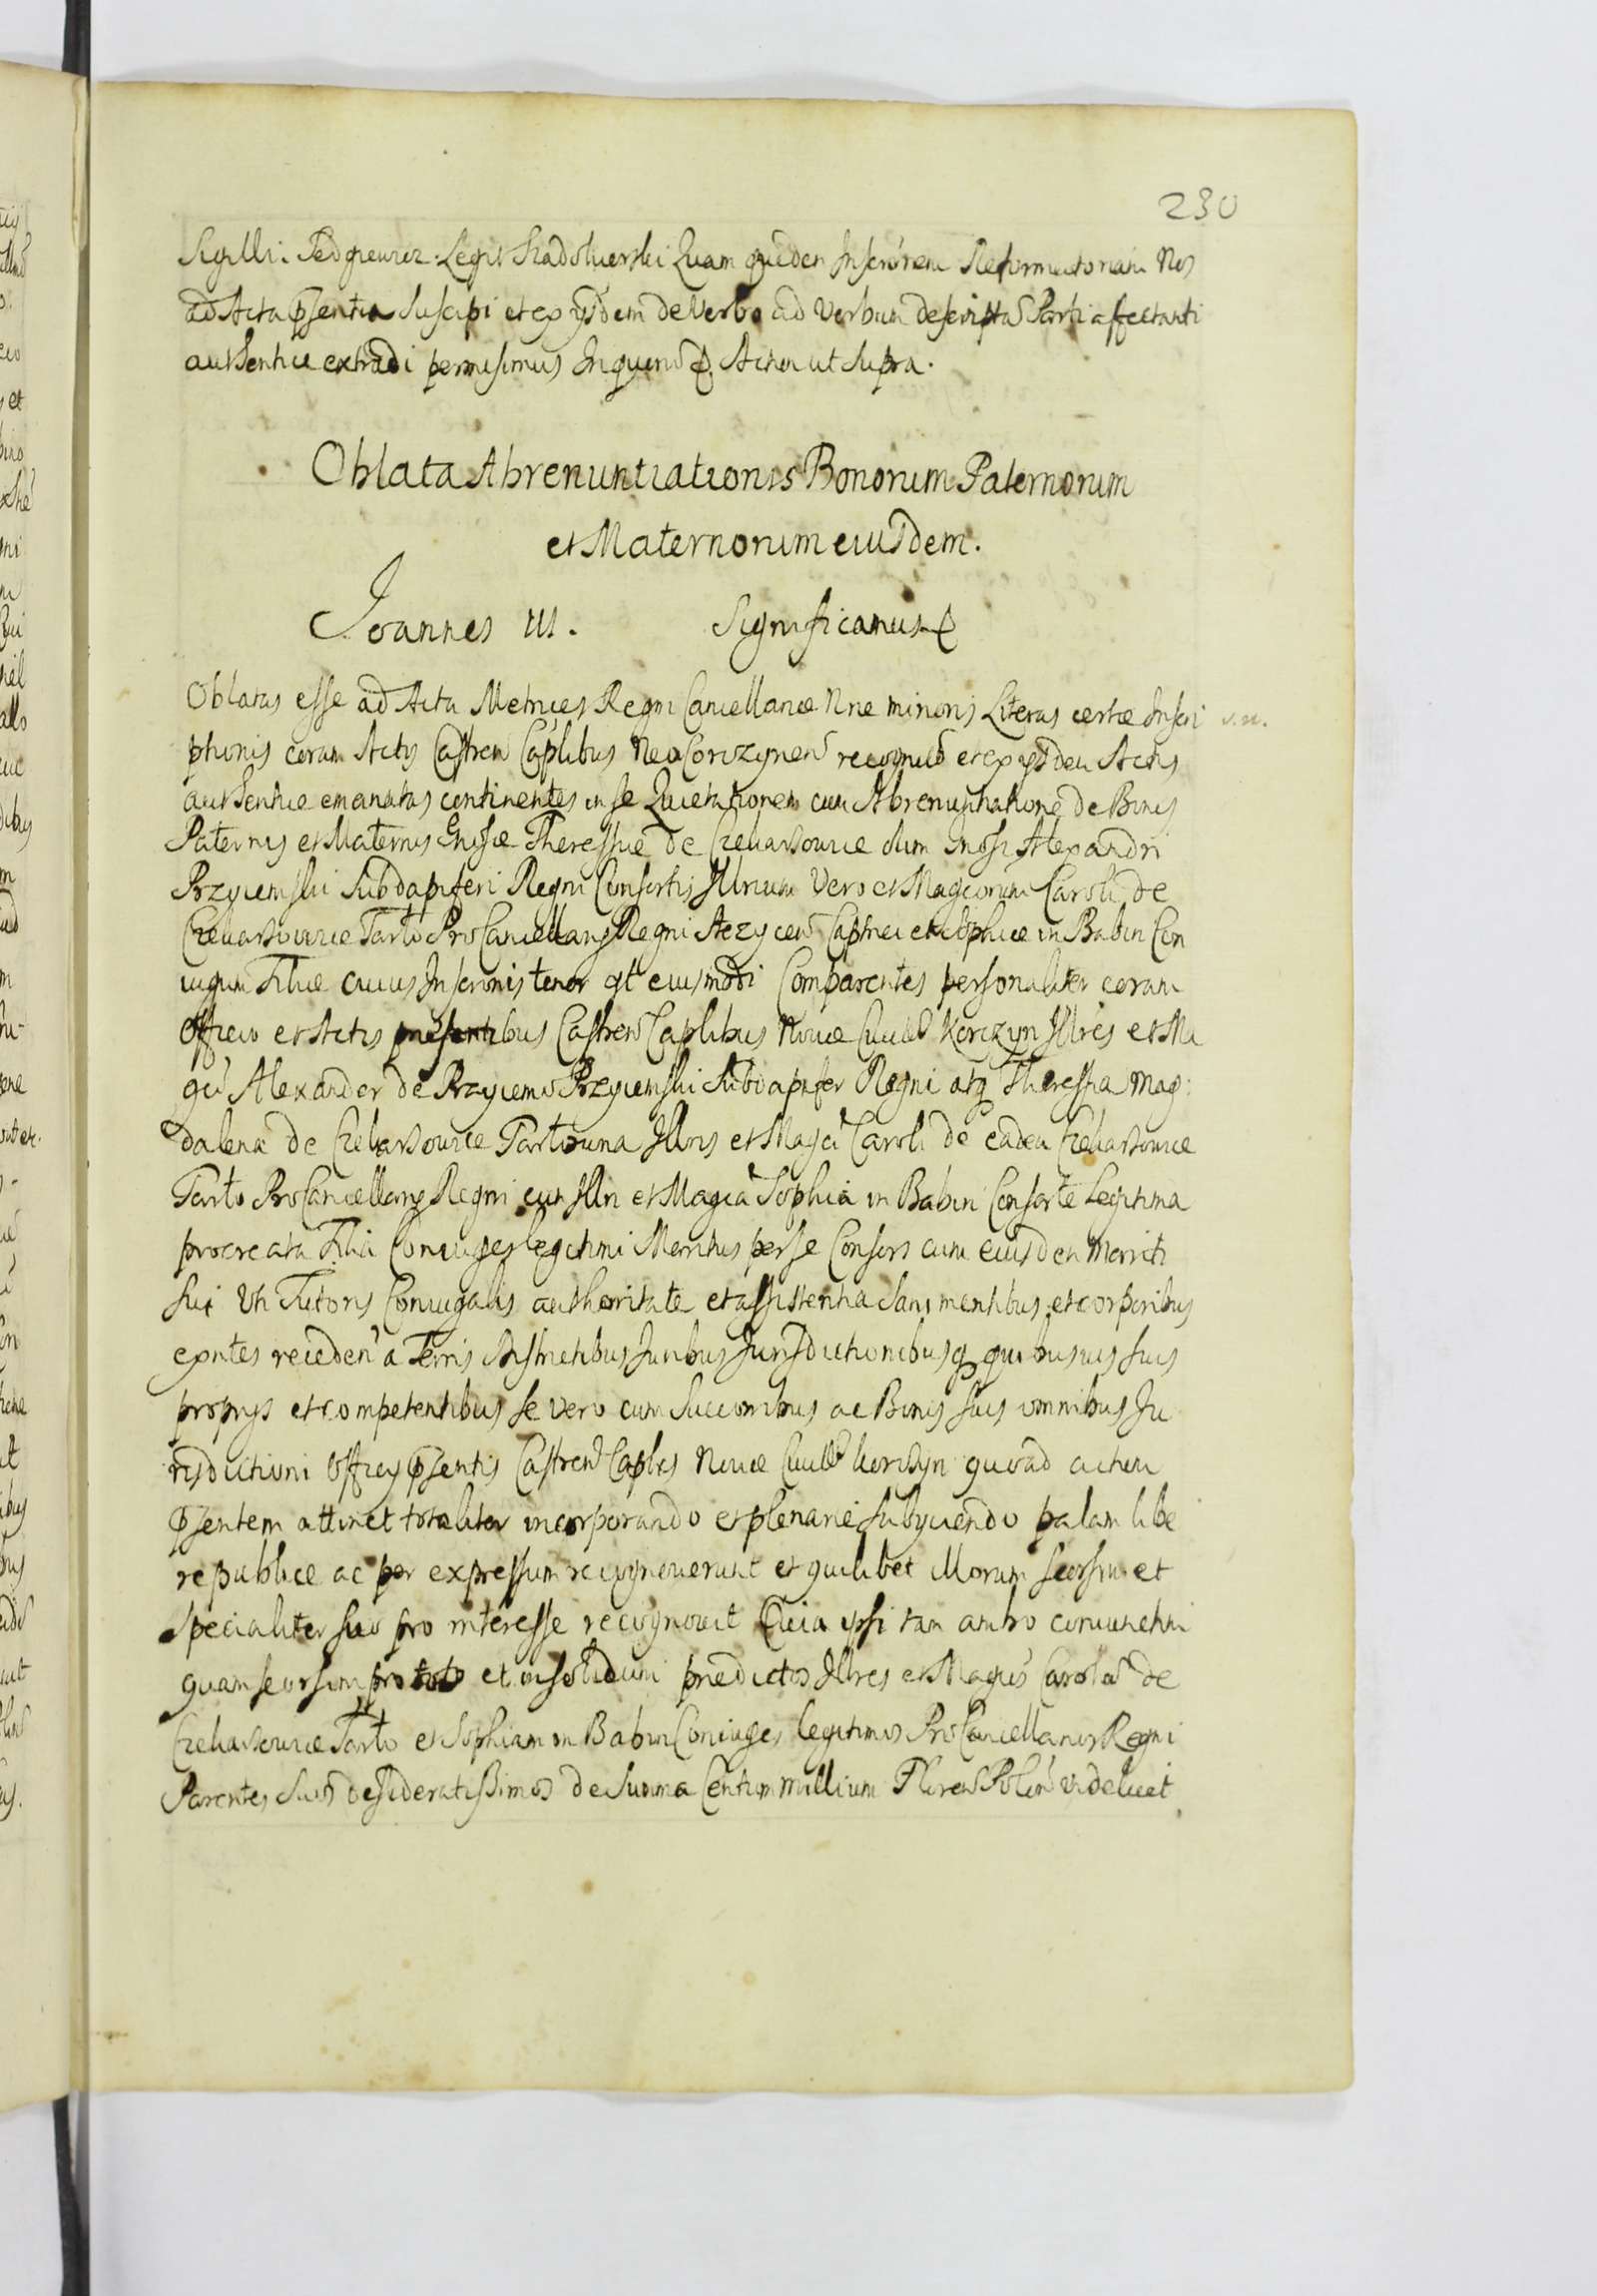 230
Sigilli. Legit Quam quidem Inscrônem Reformatoriam Nos
ad Acta pñsentia suscipi et ex ijsdem de Verbo ad Verbum descriptã Parti affectanti
authentice extradi permisimus In quorũ Actum ut supra.
Oblata Abrenuntiationis Bonorum Paternorum
et Maternorum eiusdem.
Joannes III. Significamus
Oblatas esse ad Acta Metrices Regni Cancellariæ Nræ minoris Literas certæ Inscri
ptionis coram Actis Castren Caplibus NeoCorczynen recognitũ et ex ijsdem Actis
authentice emanatas continentes in se Quietationem cum Abrenuntiatione de Bonis
Paternis et Maternis Gñosæ Theressiæ de Czekarzowice olim Gñosi Alexandri
Przyiemski Subdapiferi Regni Consortis Illrium Vero et Magcorum Caroli de
Czekarzowice Tarło ProCancellarij Regni Capitanei et Sophiæ in Babin Con
iugum Filiæ cuius Inscrônis tenor est eiusmodi Comparentes personaliter coram
Officio et Actis præsentibus Castren Caplibus Novæ Civitat Korczyn Illres et Ma
gci Alexander de Przyiemo Przyiemski Subdapifer Regni atq Theressia Mag
dalena de Czekarzowice Tarłowna Illris et Magci Caroli de eadem Czekarzowice
Tarło ProCancellarij Regni cum Illri et Magca Sophia in Babin Consorte Legitima
procreata Filia Coniuges legitimi Merritus per se Consors cum eiusdem Merriti
sui Uti Tutoris Coniugalis authoritate et assistentia Sani mentibus et corporibus
exntes receden a Terris Districtibus Juribus Jurisdictionibusq quibusvis suis
proprijs et competentibus se vero cum Successoribus ac Bonis suis omnibus Ju
risdictioni Officij pñsentis Castren Caplis Novæ Civitt Korczyn quoad actum
pñsentem attinet totaliter incorporando et plenarie subijciendo palam libe
re publice ac per expressum recognoverunt et quilibet illorum seorsim et
specialiter suo pro interesse recognovit Quia ipsi tam ambo coniunctim
quam seorsim pro toto et in solidum prædictos Illres et Magcos Carolũ de
Czekarzowice Tarło et Sophiam in Babin Coniuges legitimos ProCancellarios Regni
Parentes suos desideratissimos de Summa Centum millium Floren Polon videlicet